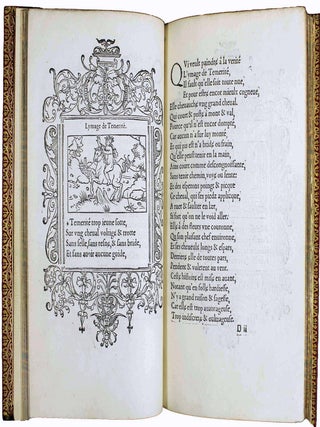 Lymage de Temerité.
Temerité trop jeune sotte,
Sur vng cheual voltige & trotte
Sans selle, sans resne, & sans bride,
Et sans auoir aucune guide.
QVi veult paindre à la verité
L'ymage de Temerité,
Il fault qu'elle soit toute nue,
Et pour estre encor mieulx cogneue,
Elle cheauche vng grand cheual,
Qui court & posta à mont & val,
Pource qu'il n'est encor dompté,
Car aucun n'a sur luy monté
Et qui pis est n'a bride ou frain,
Qu'elle puisse tenir en la main,
Ains court comme
Sans tenir chemin, voye ou sente:
Et des esperons poingt & picque
Ce cheual, qui ses piedz applicque,
A ruer & saulter en lair,
Si fort qu'on ne le void aller.
Ell'a des fleurs vne couronne,
Qui son plaisant chef enuironne,
Et ses cheueulx longs & espars,
Derriere elle de toutes pars,
Pendent & vollent au vent.
Ceste histoire est mise en auant,
Notant qu'en folle hardiesse,
N'y a grand raison & sagesse,
Car elle est trop auantageuse,
Trop indiscrete & oultrageuse.